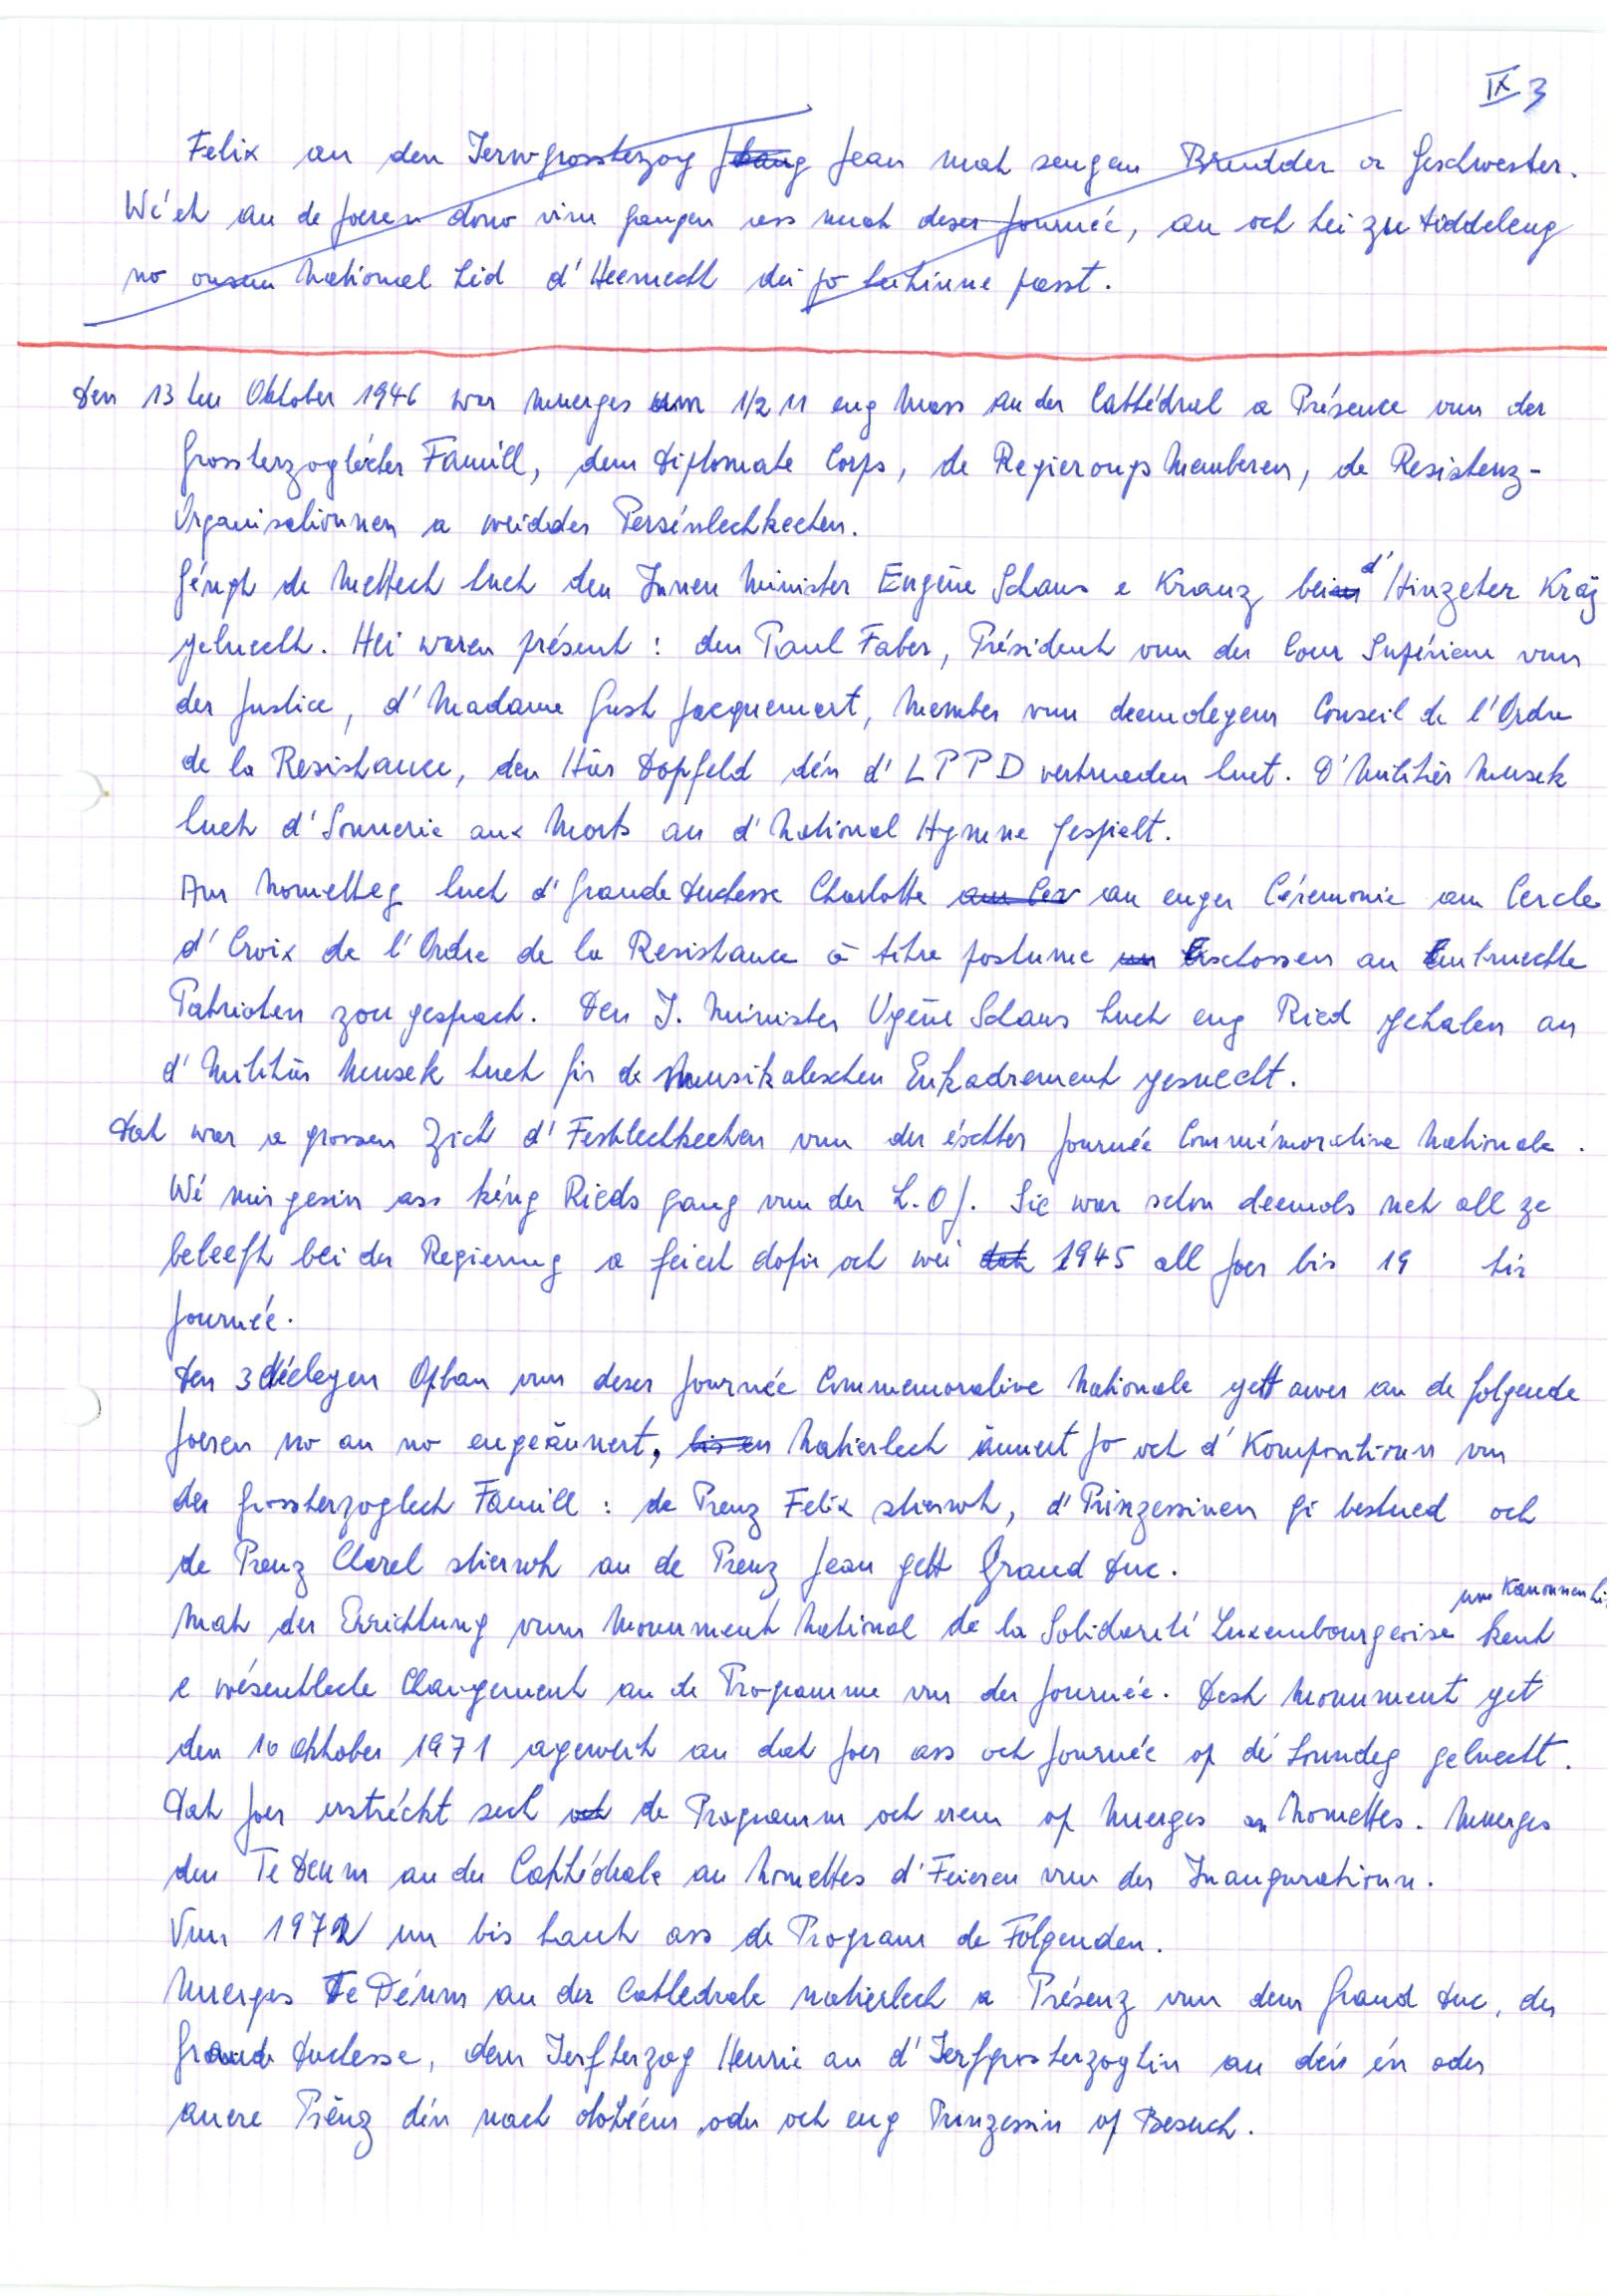 IX 3
Felix an den Ierwgrossherzog Jean mat sengen Brudder a Geschwester.
Wéët an de Joeren dono virun gangen ass mat deser Journée, an och hei zu Diddeleng
no onsem National Lid d'Heemecht déi jo hei hinne passt.
Den 13 ten Oktober 1946 war muerges um 1/2 11 eng Mass an der Cathédral a Présence vun der
Grossherzoglécher Famill, dem Diplomate Corps, de Regierungs Memberen, de Resistenz-
Organisatiounen a weidder Persénlechkeeten.
Géngt de Mëttech huet den Innen Minister Eugène Schaus e Kranz bei d'Hinzerter Kräiz
geluecht. Hei waren présent : den Paul Faber, Président vun der Cour Supérieur vun
der Justice, d'Madame Gust Jacquemart, Member vum deemolegen Conseil de l'Ordre
de la Resistance, den Här Dopfeld dén d'LPPD vertrueden huet. D'Militär Musek
huet d'Sonnerie aux Morts an d'National Hymne gespielt.
Am Nometteg huet d'Grande Duchesse Charlotte an enger Cérémonie am Cercle
d'Croix de l'Ordre de la Resistance à titre postume Erschossen an Embruechte
Patrioten zou gesprach. Den I. Minister Ugène Schaus huet eng Ried gehalen an
d'Militär Musek huet fir de Musikaleschen Enkadrement gesuecht.
Dat war a grossen Zich d'Festlechkeeten vun der éischter Journée Commémorative Nationale.
Wé mir gesin ass kéng Rieds gang vun der L.O.J. Sie war schon deemols net all ze
beleeft bei der Regierung a feiert dofir och wei 1945 all Joer bis 19 hir
Journée.
Den 3 déelegen Opbau vun deser Journée Commemorative Nationale gett awer an de folgende
Joeren no an no engeännert, Natierlech ännert Jo och d'Kompositioun vun
der Grossherzoglech Famill : de Prenz Felix stierwt, d'Prinzessinen gi bestued och
de Prenz Charel stierwt an de Prenz Jean gett Grand Duc.
um Kanounen Hi
Mat der Errichtung vum Monument National de la Solidarité Luxembourgeoise kent
e wésentleche Changement an de Programme vun der Journée. Dest Monument get
den 10 Oktober 1971 ageweit an dat Joer ass och Journée op dé Sonndeg geluecht.
Dat Joer erstréckt sech de Programm och erem op Muerges an Nomettes. Muerges
den Te Deum an der Cathédrale an Nomettes d'Feieren vun der Inauguratioun.
Vun 1972 un bis haut ass de Program de Folgenden.
Muerges Te Déum an der Cathedrale natierlech a Présenz vun dem Grand Duc, der
Grande Duchesse, dem Ierfherzog Henrie an d'Ierfgrosherzogtin an dén én oder
anere Prënz dén nach dohéem oder och eng Prinzessin op Besuch.